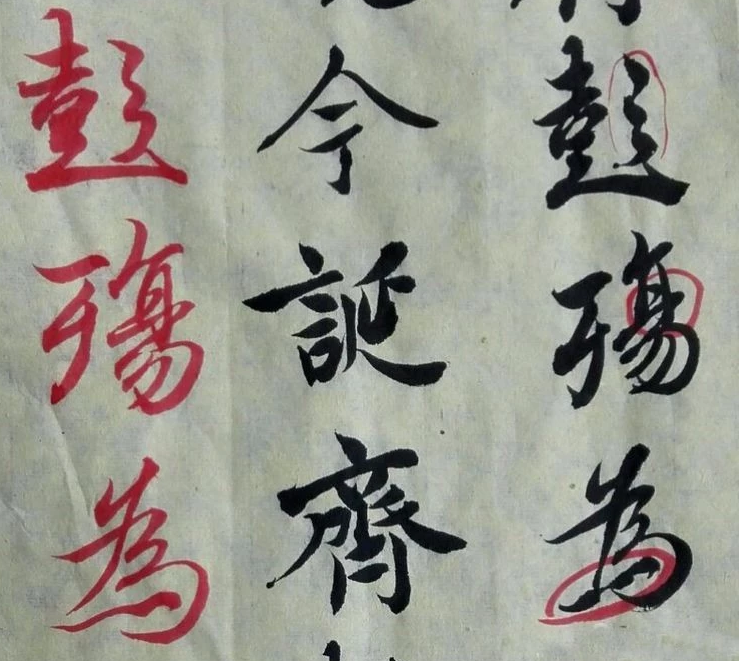 彭殤為
今誕齊
彭殤為